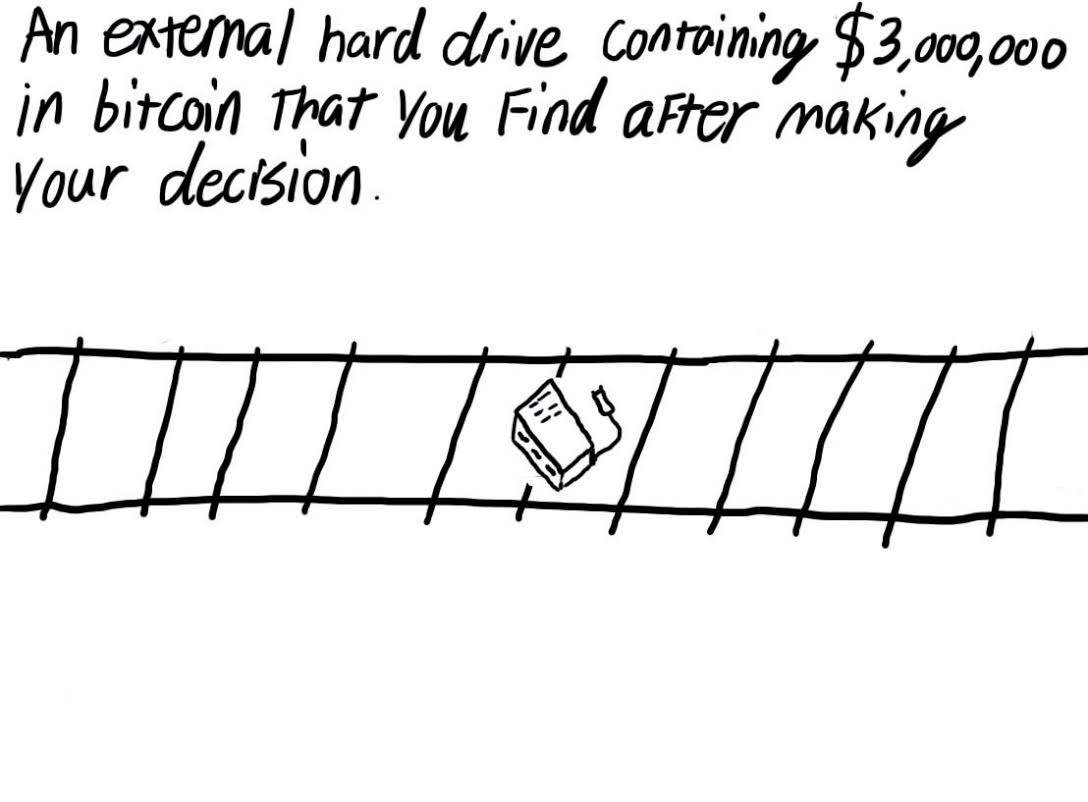 An external hard drive containing $3,000,000
in bitcoin that you find after making
your decision.